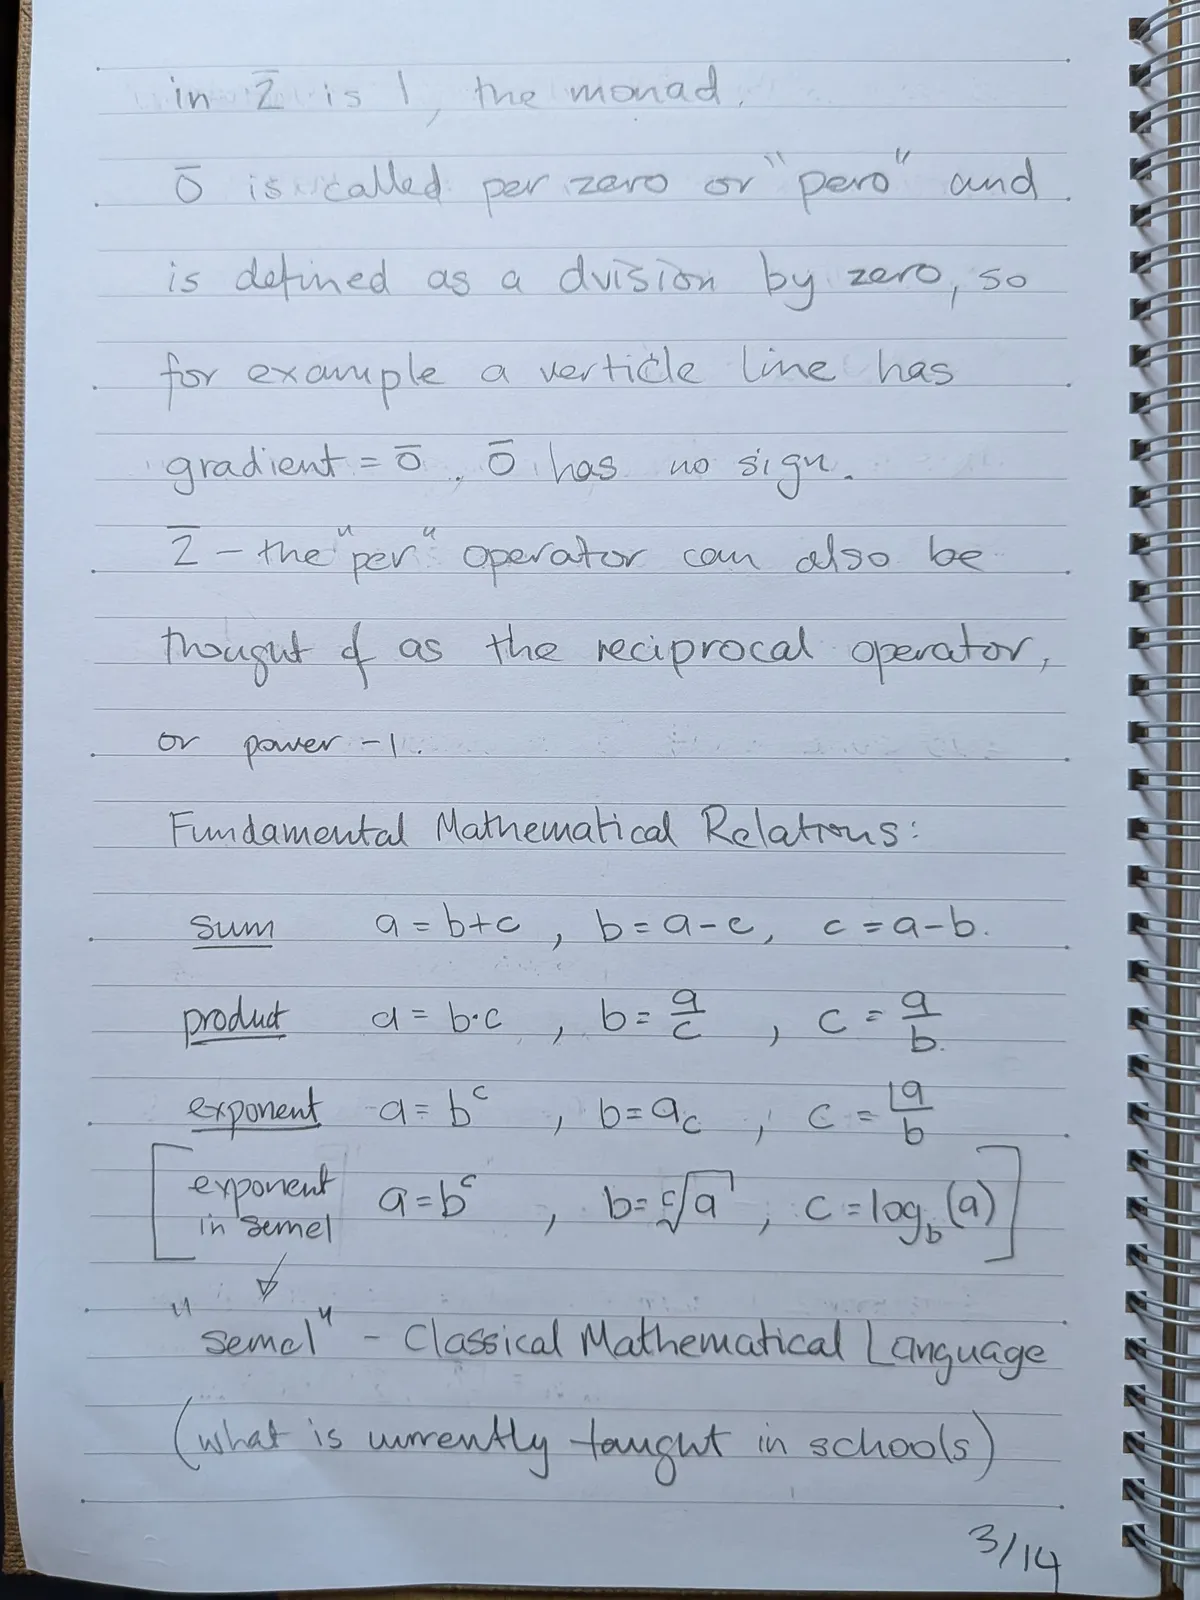 in z̅ is 1, the monad.
0̅ is called per zero or "pero" and
is defined as a dvision by zero, so
for example a verticle line has
gradient = 0̅. 0̅ has no sign.
z̅ - the "per" operator can also be
thought of as the reciprocal operator,
or power -1.
Fundamental Mathematical Relations:
sum a = b+c , b = a-c, c = a-b.
product a = b·c , b = a/c , c = a/b.
exponent a = b^c , b = a_c , c = ⌊a/b
[exponent in semel a = b^c , b = ᶜ√a , c = log_b(a)]
"semel" - Classical Mathematical Language
(what is currently taught in schools)
3/14